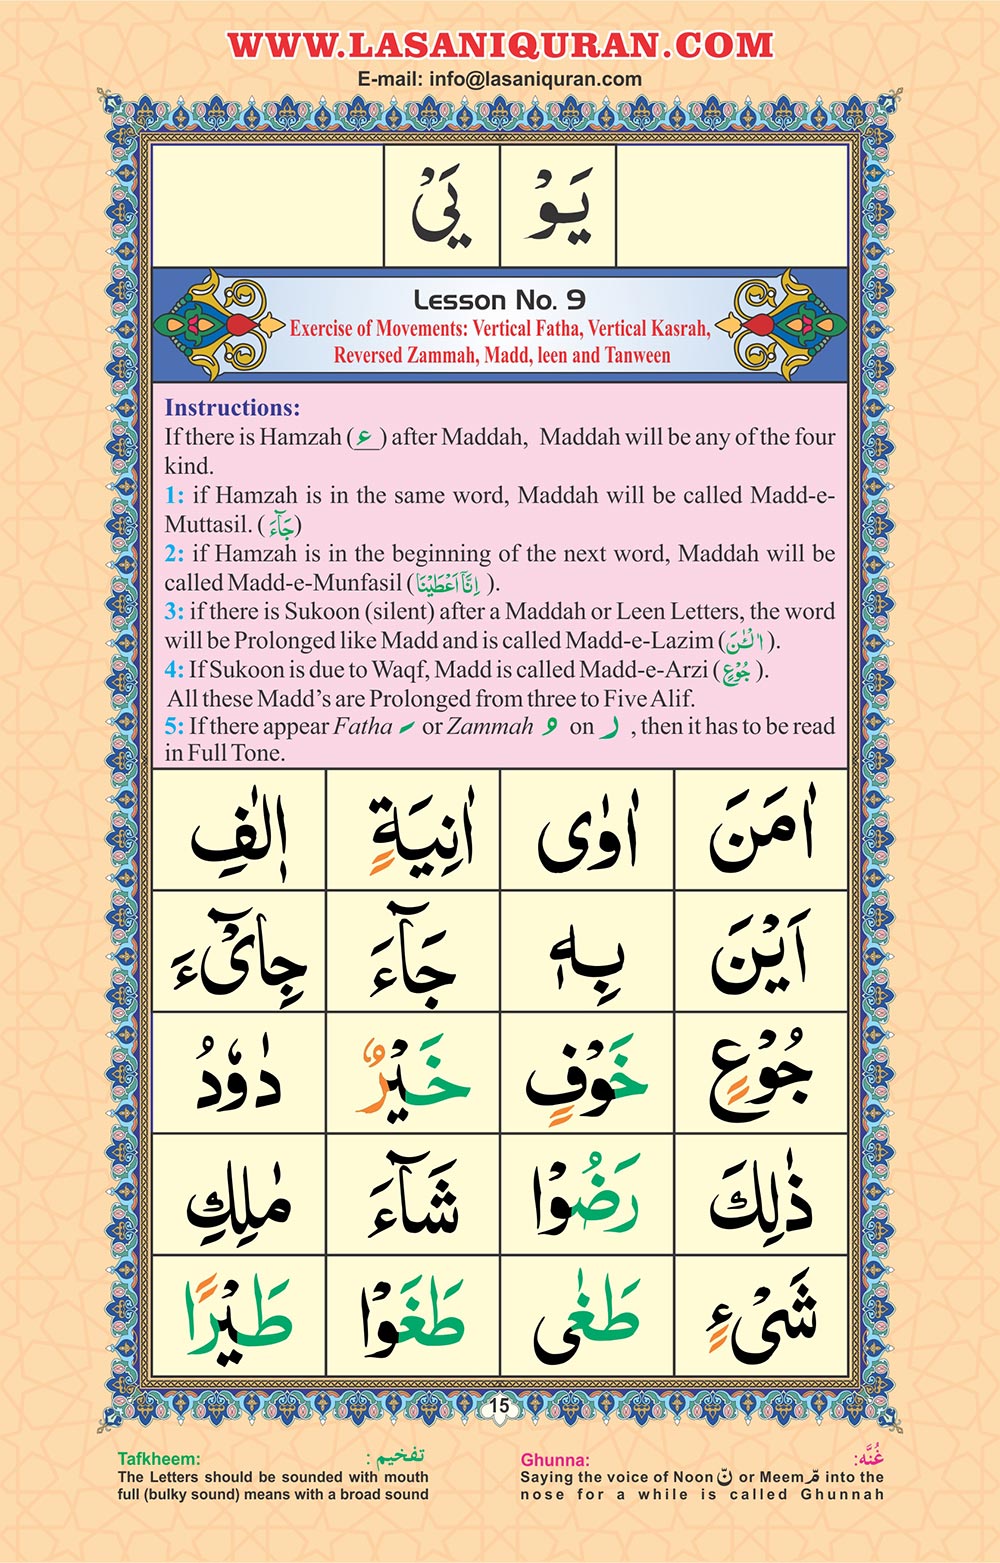 WWW.LASANIQURAN.COM
E-mail: info@lasaniquran.com
يَوْ يَيْ
Lesson No. 9
Exercise of Movements: Vertical Fatha, Vertical Kasrah,
Reversed Zammah, Madd, leen and Tanween
Instructions:
If there is Hamzah (ء) after Maddah, Maddah will be any of the four
kind.
1: if Hamzah is in the same word, Maddah will be called Madd-e-
Muttasil. (جَآءَ)
2: if Hamzah is in the beginning of the next word, Maddah will be
called Madd-e-Munfasil (اِنَّآ اَعْطَيْنَا ).
3: if there is Sukoon (silent) after a Maddah or Leen Letters, the word
will be Prolonged like Madd and is called Madd-e-Lazim ( ).
4: If Sukoon is due to Waqf, Madd is called Madd-e-Arzi (جُوْعٍ ).
All these Madd’s are Prolonged from three to Five Alif.
5: If there appear Fatha َ or Zammah ُ on ر , then it has to be read
in Full Tone.
اٰمَنَ اٰوٰى اٰنِيَةٍ اٖلٰفِ
اَيْنَ بِهٖ جَآءَ جِایْٓءَ
جُوْعٍ خَوْفٍ خَيْرٌ دٰوٗدُ
ذٰلِكَ رَضُوْا شَآءَ مٰلِكِ
شَیْءٍ طَغٰى طَغَوْا طَيْرًا
15
Tafkheem: تفخيم :
The Letters should be sounded with mouth
full (bulky sound) means with a broad sound
Ghunna: غُنَّه:
Saying the voice of Noon نّ or Meem مّ into the
nose for a while is called Ghunnah